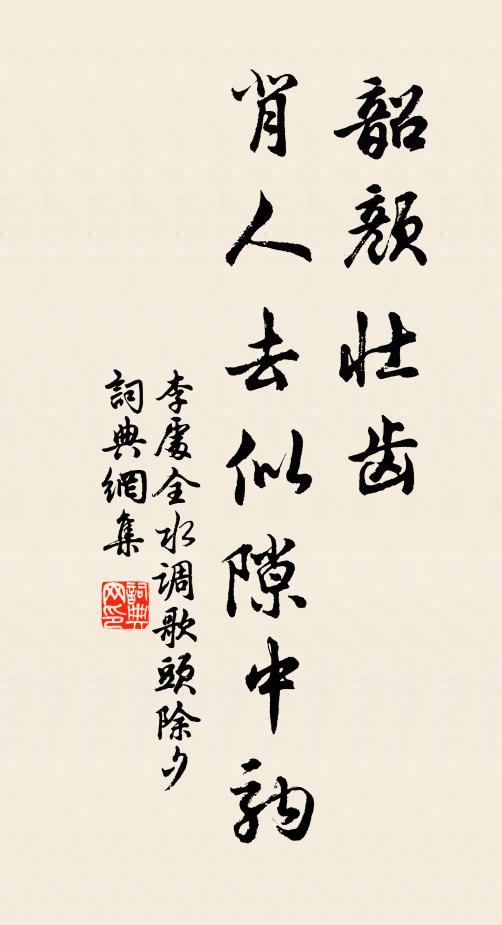 韶颜壮齿
肖人去似隙中驹
李處全水调歌頭除夕
詞典網集
詞典网印